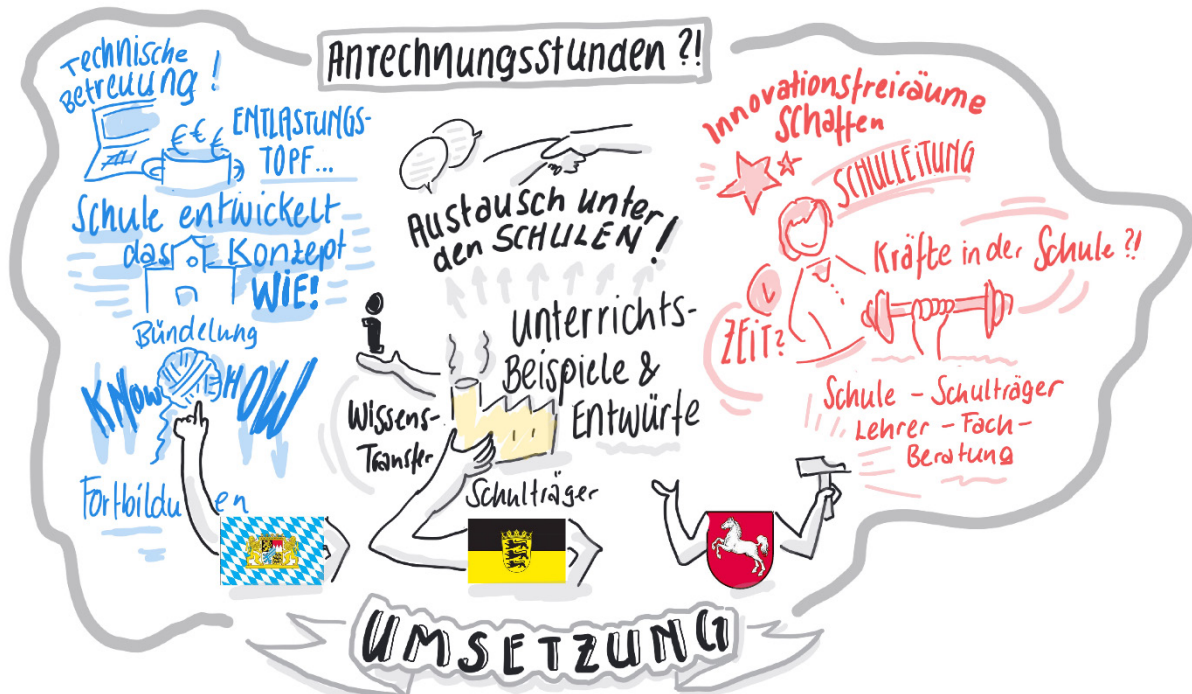 Anrechnungsstunden ?!
Technische
Betreuung !
€€€
ENTLASTUNGS-
TOPF...
Schule entwickelt
das Konzept
WIE!
Bündelung
KNOW HOW
Fortbildu en
Austausch unter
den SCHULEN !
i
Unterrichts-
Beispiele &
Entwürfe
Wissens-
Transfer
Schulträger
Innovationsfreiräume
Schaffen
SCHULLEITUNG
Kräfte in der Schule ?!
ZEIT?
Schule – Schulträger
Lehrer – Fach-
Beratung
UMSETZUNG